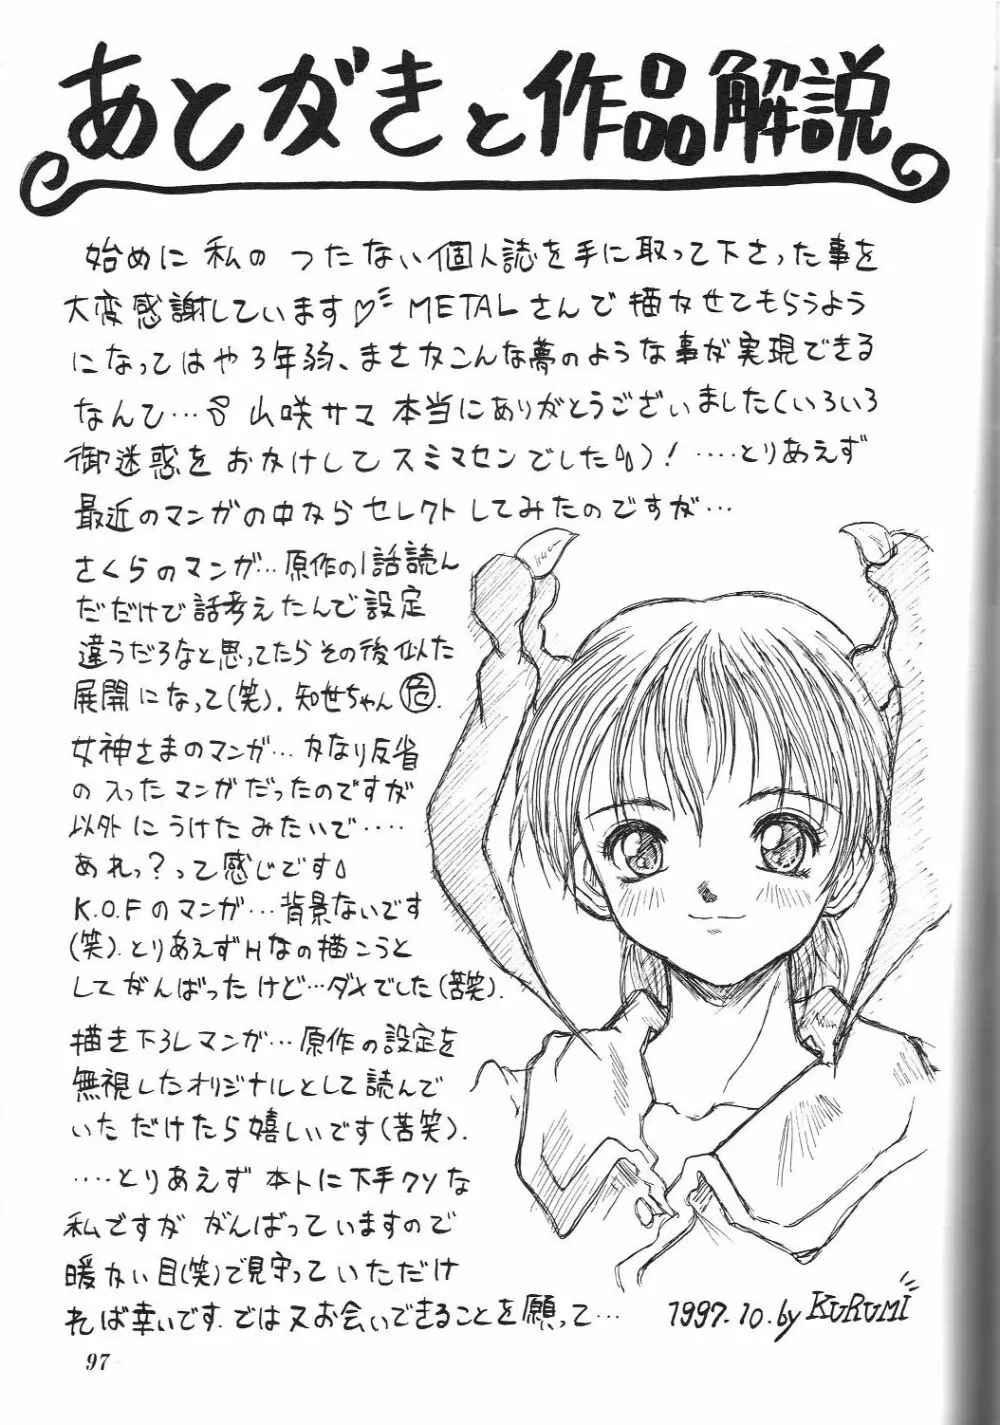 あとがきと作品解説
始めに 私の つたない個人誌を手に取って下さった事を
大変感謝しています♡ METALさんで描かせてもらうよう
になってはや3年弱、まさかこんな夢のような事が実現できる
なんて… 山咲サマ 本当にありがとうございました(いろいろ
御迷惑を おかけして スミマセンでした)! ‥‥とりあえず
最近のマンガの中から セレクトしてみたのですが…
さくらのマンガ…原作の1話読ん
だだけで話考えたんで設定
違うだろなと思ってたらその後似た
展開になって(笑). 知世ちゃん㊂.
女神さまのマンガ… かなり反省
の入ったマンガだったのですが
以外にうけたみたいで‥‥
あれっ?って感じです
K.O.Fのマンガ…背景ないです
(笑).とりあえずHなの描こうと
してがんばったけど…ダメでした(苦笑).
描き下ろしマンガ…原作の設定を
無視したオリジナルとして読んで
いただけたら嬉しいです(苦笑).
‥‥とりあえず 本トに下手クソな
私ですが がんばっていますので
暖かい目(笑)で見守っていただけ
れば幸いです.では又お会いできることを願って…
1997.10.by KURUMI
97